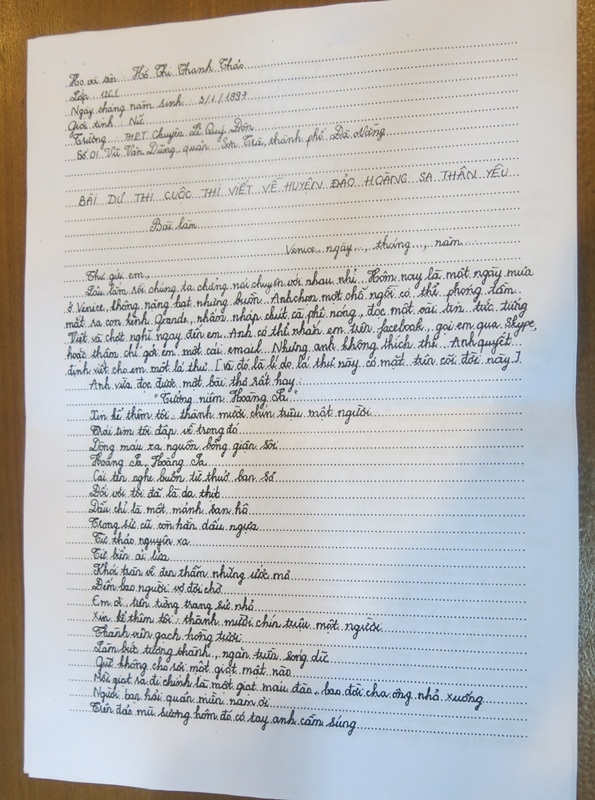 Họ và tên: Hồ Thị Thanh Thảo
Lớp: 12C1
Ngày tháng năm sinh: 3/1/1997
Giới tính: Nữ
Trường: THPT Chuyên Lê Quý Đôn
Số 01 Vũ Văn Dũng, quận Sơn Trà, thành phố Đà Nẵng
BÀI DỰ THI CUỘC THI VIẾT VỀ HUYỆN ĐẢO HOÀNG SA THÂN YÊU
Bài làm
Venice, ngày..., tháng..., năm...
Thư gửi em,
Lâu lắm rồi chúng ta chẳng nói chuyện với nhau nhỉ. Hôm nay là một ngày mưa
ở Venice, không nặng hạt nhưng buồn. Anh chọn một chỗ ngồi có thể phóng tầm
mắt ra con kênh Grande, nhâm nháp chút cà phê nóng, đọc một vài tin tức tiếng
Việt và chợt nghĩ ngay đến em. Anh có thể nhắn em trên facebook, gọi em qua Skype,
hoặc thậm chí gởi em một cái email. Nhưng anh không thích thế. Anh quyết
định viết cho em một lá thư. [Và đó là lí do lá thư này có mặt trên cõi đời này.]
Anh vừa đọc được một bài thơ rất hay:
"Tưởng niệm Hoàng Sa"
Xin kể thêm tôi - thành mười chín triệu một người
Trái tim tôi đập về trong đó
Dòng máu xa nguồn bỗng giận sôi
Hoàng Sa, Hoàng Sa
Cái tên nghe buồn từ thuở ban sơ
Đối với tôi đã là da thịt
Dẫu chỉ là một mảnh san hô
Trong sử cũ còn hằn dấu ngựa
Từ thảo nguyên xa
Từ biển ải lửa
Khói tràn về đen thẫm những ước mơ
Đến bao người vợ đợi chờ
Em ơi, trên từng trang sử nhỏ
Xin kể thêm tôi: thành mười chín triệu một người
Thành viên gạch hồng tươi
Làm bức tường thành, ngăn trừa sóng dữ
Quê không cho rơi một giọt mật nào
Mỗi giọt sa đi chính là một giọt máu đào, bao đời cha ông nhỏ xuống
Người bạn hải quân miền nam ơi
Trên đảo mù sương hôm đó có tay anh cầm súng